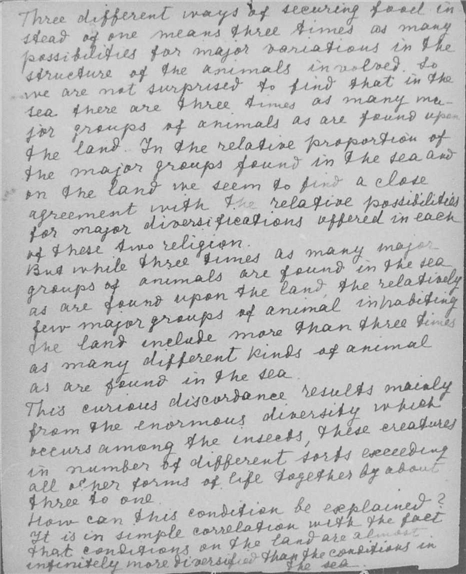 Three different ways of securing food in
stead of one means three times as many
possibilities for major variations in the
structure of the animals involved. So
we are not surprised to find that in the
sea there are three times as many ma-
jor groups of animals as are found upon
the land. In the relative proportion of
the major groups found in the sea and
on the land we seem to find a close
agreement with the relative possibilities
for major diversifications offered in each
of these two religion.
But while three times as many major
groups of animals are found in the sea
as are found upon the land, the relatively
few major groups of animal inhabiting
the land include more than three times
as many different kinds of animal
as are found in the sea.
This curious discordance results mainly
from the enormous diversity which
occurs among the insects, these creatures
in number of different sorts exceeding
all other forms of life together by about
three to one.
How can this condition be explained?
It is in simple correlation with the fact
that conditions on the land are almost
infinitely more diversified than the conditions in
the sea.